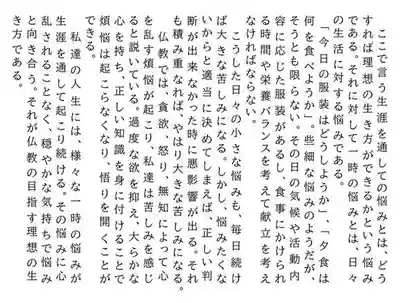 ここで言う生涯を通しての悩みとは、どう
すれば理想の生き方ができるかという悩み
である。それに対して一時の悩みとは、日々
の生活に対する悩みである。
　「今日の服装はどうしようか」、「夕食は
何を食べようか」。些細な悩みのようだが、
そうとも限らない。その日の気候や活動内
容に応じた服装があるし、食事にかけられ
る時間や栄養バランスを考えて献立を考え
なければならない。
　こうした日々の小さな悩みも、毎日続け
ば大きな苦しみになる。しかし、悩みたくな
いからと適当に決めてしまえば、正しい判
断が出来なかった時に悪影響が出る。それ
も積み重なれば、やはり大きな苦しみになる。
　仏教では、貪欲、怒り、無知によって心
を乱す煩悩が起こり、私達は苦しみを感じ
ると説いている。過度な欲を抑え、大らかな
心を持ち、正しい知識を身に付けることで
煩悩は起こらなくなり、悟りを開くことが
できる。
　私達の人生には、様々な一時の悩みが
生涯を通して起こり続ける。その悩みに心
乱されることなく、穏やかな気持ちで悩み
と向き合う。それが仏教の目指す理想の生
き方である。